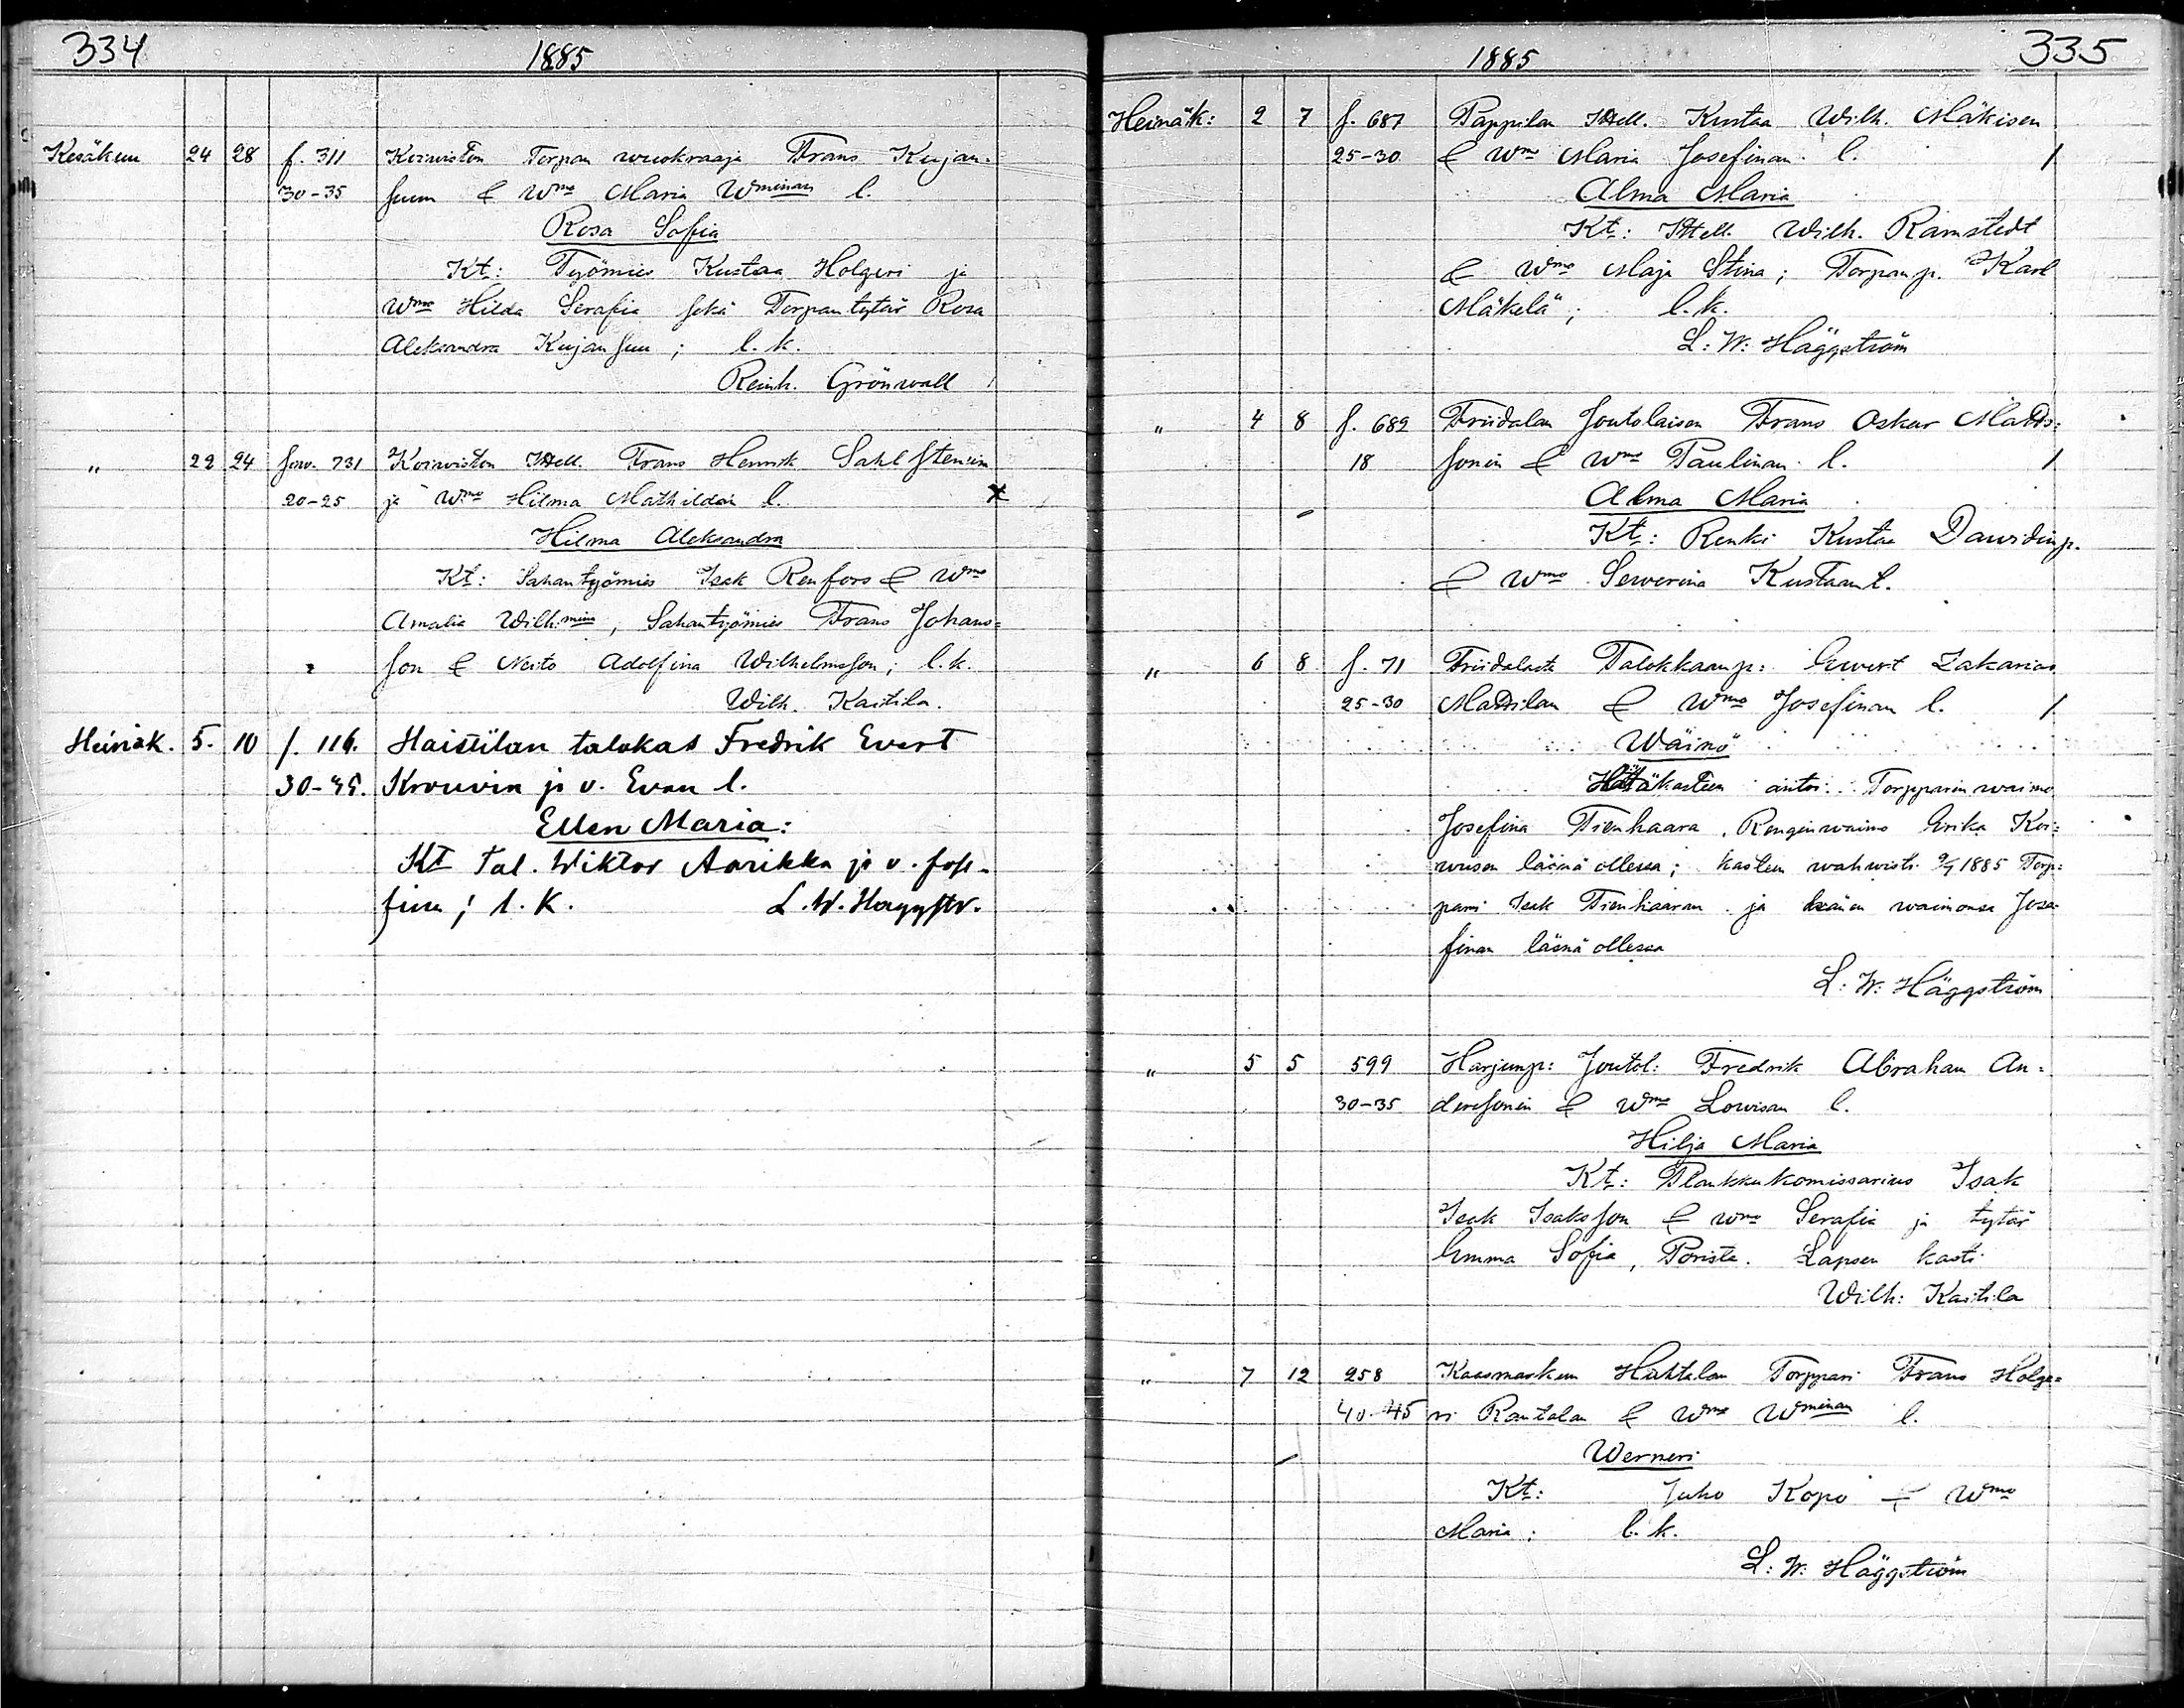 334
1885
Kesäkuu 24 28 f. 311 Koiviston Torpan wuokraaja Frans Kujan-
30-35 suun & Wmo Maria Wminan l.
Rosa Sofia
Kt: Työmies Kustaa Holgeri ja
Wmo Hilda Serafia sekä Torpantytär Rosa
Aleksandra Kujansuu; l. k.
Reinh. Grönwall
" 22 24 731 Koiwiston Frans Henrik Sahlstenin
20-25 ja Wmo Hilma Mathildan l. x
Hilma Aleksandra
Kt: Sahantyömies Isak Renfors & Wmo
Amalia Wilh.mina, Sahantyömies Frans Johans=
son & Neito Adolfina Wilhelmsson; l. k.
Wilh. Kaitila.
Heinäk. 5. 10 f. 116. Haistilan talokas Fredrik Evert
30-35. Krouvin ja v. Evan l.
Ellen Maria:
Kt Tal. Wiktor Aarikka ja v. Jose-
fina; l. K. L. W. Häggstr.
1885
335
Heinäk: 2 7 f. 687 Pappilan Kustaa Wilh. Mäkisen
25-30 & Wmo Maria Josefinan l. /
Alma Maria
Kt: Wilh. Ramstedt
& Wmo Maja Stina; Torpanp. Karl
Mäkelä; l. k.
L: W: Häggström
" 4 8 f. 682 Friidalan Joutolaisen Frans Oskar Matts=
18 sonin & Wmo Paulinan l. /
Alma Maria
Kt: Renki Kustaa Dawidinp.
& Wmo Sewerina Kustaant.
" 6 8 f. 71 Friidalasta Talokkaanp: Ewert Zakarias
25-30 Mattilan & Wmo Josefinan l. /
Wäinö
Hätäkasteen antoi Torpparinwaimo
Josefina Tienhaara, Renginwaimo Erika Koi=
wuson läsnä ollessa; kasteen wahwisti 9/7 1885 Torp=
pari Isak Tienhaaran ja hänen waimonsa Jose-
finan läsnä ollessa
L: W: Häggström
" 5 5 599 Harjunp: Joutol: Fredrik Abraham An=
30-35 dersonin & Wmo Lowisan l.
Hilja Maria
Kt: Plankkukomissarius Isak
Isak Isaksson & Wmo Serafia ja tytär
Emma Sofia, Porista. Lapsen kasti
Wilh: Kaitila
" 7 12 258 Kaasmarkun Hahtolan Torppari Frans Holge=
40-45 ri Rantalan & Wmo Wminan l.
Werneri
Kt: Juho Kopo & Wmo
Maria; l. k.
L: W: Häggström